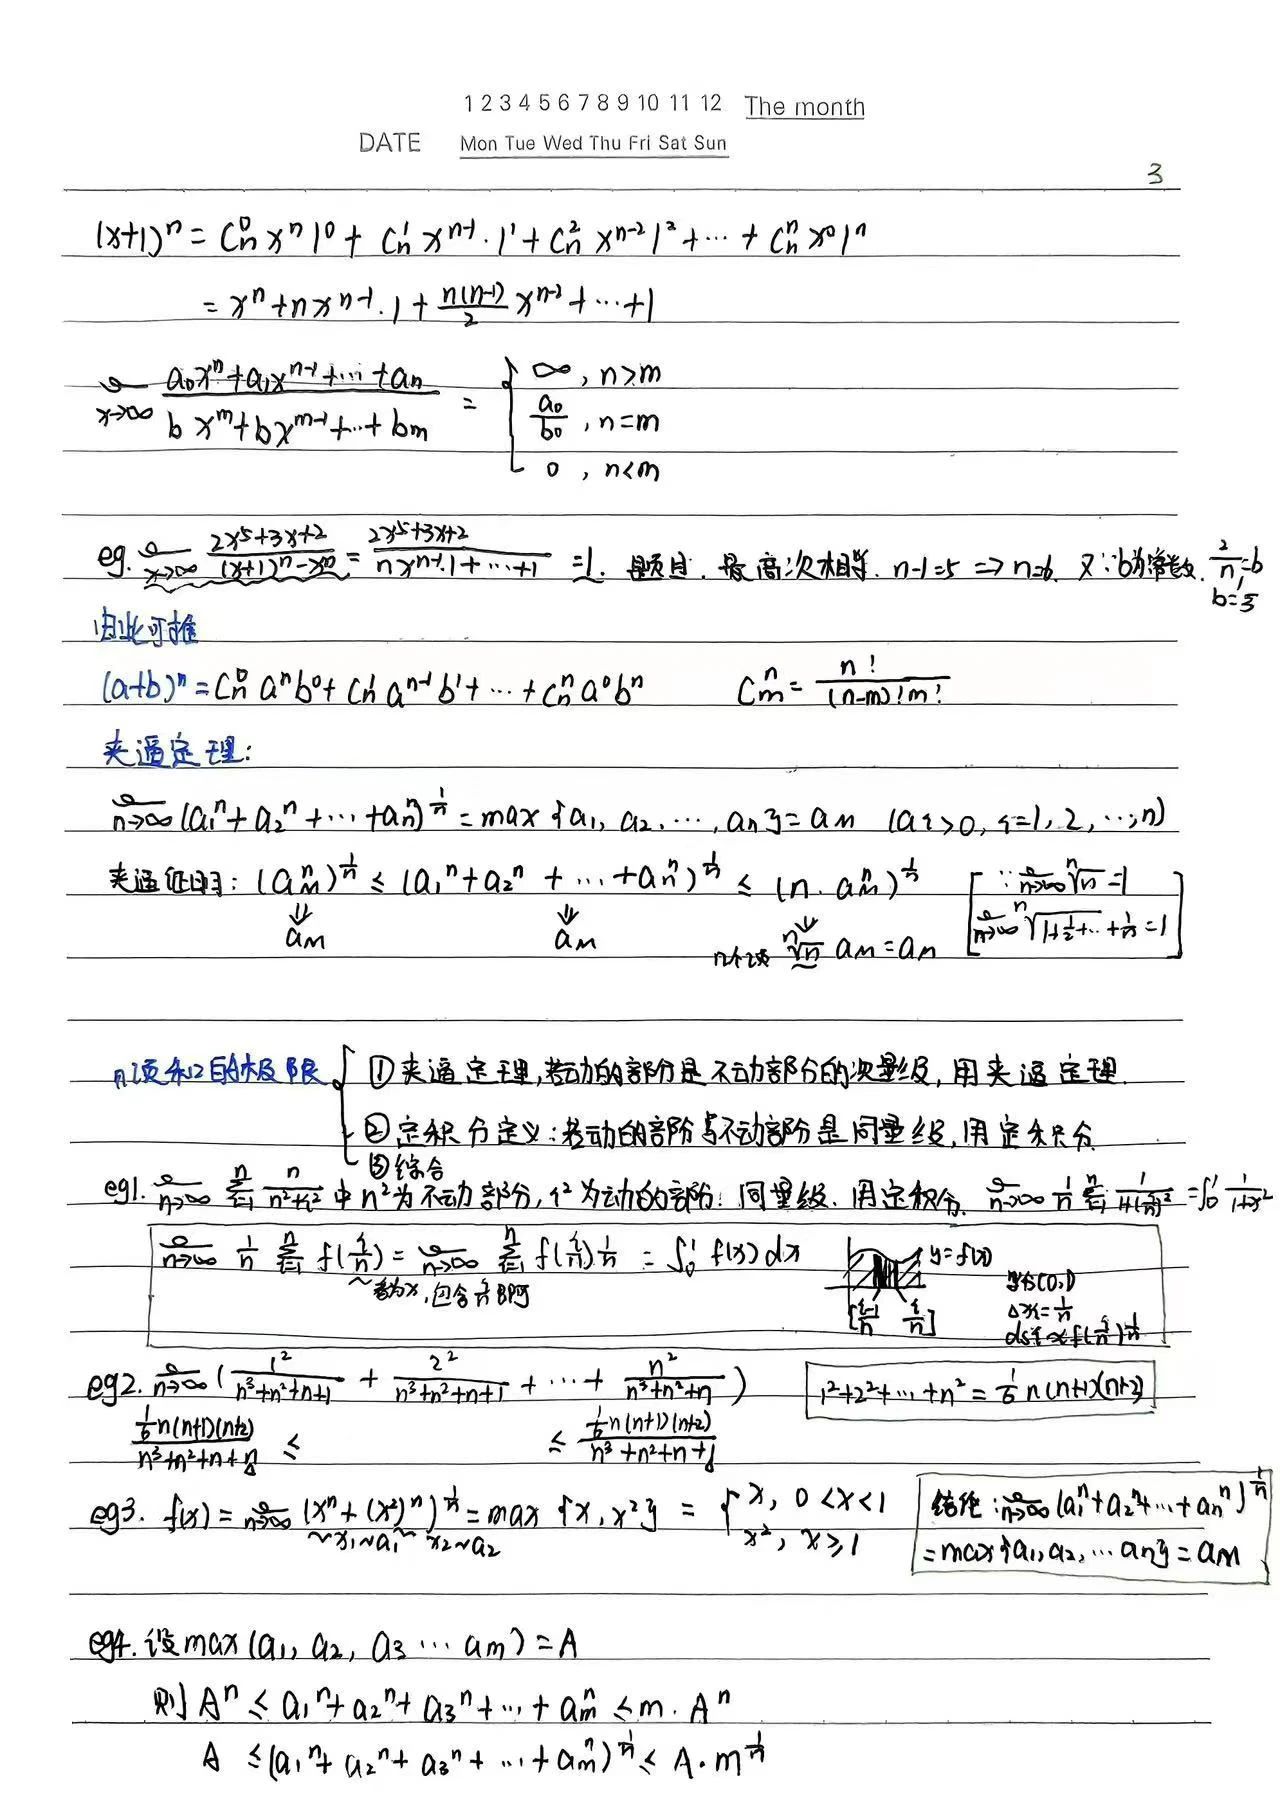 1 2 3 4 5 6 7 8 9 10 11 12 The month
DATE Mon Tue Wed Thu Fri Sat Sun
3
(x+1)ⁿ = Cₙ⁰ xⁿ 1⁰ + Cₙ¹ xⁿ⁻¹·1¹ + Cₙ² xⁿ⁻² 1² + ··· + Cₙⁿ x⁰ 1ⁿ
= xⁿ + n xⁿ⁻¹·1 + n(n-1)/2 xⁿ⁻² + ··· + 1
lim x→∞ (a₀xⁿ + a₁xⁿ⁻¹ + ··· + aₙ)/(b xᵐ + b xᵐ⁻¹ + ··· + bₘ) = { ∞, n>m
a₀/b₀, n=m
0, n<m
eg. lim x→∞ (2x⁵+3x+2)/((x+1)ⁿ-xⁿ) = (2x⁵+3x+2)/(n xⁿ⁻¹·1+···+1) = 1. 题目. 最高次相等. n-1=5 ⇒ n=6. 又∵b为常数. 2/n=b
b=1/3
由此可推
(a+b)ⁿ = Cₙ⁰ aⁿb⁰ + Cₙ¹ aⁿ⁻¹b¹ + ··· + Cₙⁿ a⁰bⁿ Cₘⁿ = n!/((n-m)!m!)
夹逼定理:
lim n→∞ (a₁ⁿ + a₂ⁿ + ··· + aₙⁿ)^(1/n) = max{a₁, a₂, ···, aₙ} = a_M (aᵢ>0, i=1, 2, ···, n)
夹逼证明: (a_Mⁿ)^(1/n) ≤ (a₁ⁿ + a₂ⁿ + ··· + aₙⁿ)^(1/n) ≤ (n·a_Mⁿ)^(1/n) [∵ lim n→∞ ⁿ√n = 1
⇓ a_M ⇓ a_M ⇓ ⁿ√n a_M = a_M lim n→∞ ⁿ√(1+1/2+···+1/n) = 1]
n项和的极限 { ① 夹逼定理, 若动的部分是不动部分的次量级, 用夹逼定理.
② 定积分定义: 若动的部分与不动部分是同量级, 用定积分
③ 综合
eg1. lim n→∞ Σ(i=1→n) n/(n²+i²) 中 n² 为不动部分, i² 为动的部分. 同量级. 用定积分. lim n→∞ 1/n Σ(i=1→n) 1/(1+(i/n)²) = ∫₀¹ 1/(1+x²)
lim n→∞ 1/n Σ(i=1→n) f(i/n) = lim n→∞ Σ(i=1→n) f(i/n) 1/n = ∫₀¹ f(x) dx y=f(x)
看为x, 包含 i/n 即可 [(i-1)/n i/n] (0,1)
Δx=1/n
f(i/n) 1/n
eg2. lim n→∞ (1²/(n³+n²+n+1) + 2²/(n³+n²+n+1) + ··· + n²/(n³+n²+n)) 1²+2²+···+n² = 1/6 n(n+1)(n+2)
(1/6 n(n+1)(n+2))/(n³+n²+n+n) ≤ ≤ (1/6 n(n+1)(n+2))/(n³+n²+n+1)
eg3. f(x) = lim n→∞ (xⁿ + (x²)ⁿ)^(1/n) = max{x, x²} = { x, 0<x<1 结论: lim n→∞ (a₁ⁿ+a₂ⁿ+···+aₙⁿ)^(1/n)
x₁~a₁ x₂~a₂ x², x≥1 = max{a₁, a₂, ··· aₙ} = a_M
eg4. 设 max(a₁, a₂, a₃ ··· aₘ) = A
则 Aⁿ ≤ a₁ⁿ + a₂ⁿ + a₃ⁿ + ··· + aₘⁿ ≤ m·Aⁿ
A ≤ (a₁ⁿ + a₂ⁿ + a₃ⁿ + ··· + aₘⁿ)^(1/n) ≤ A·m^(1/n)